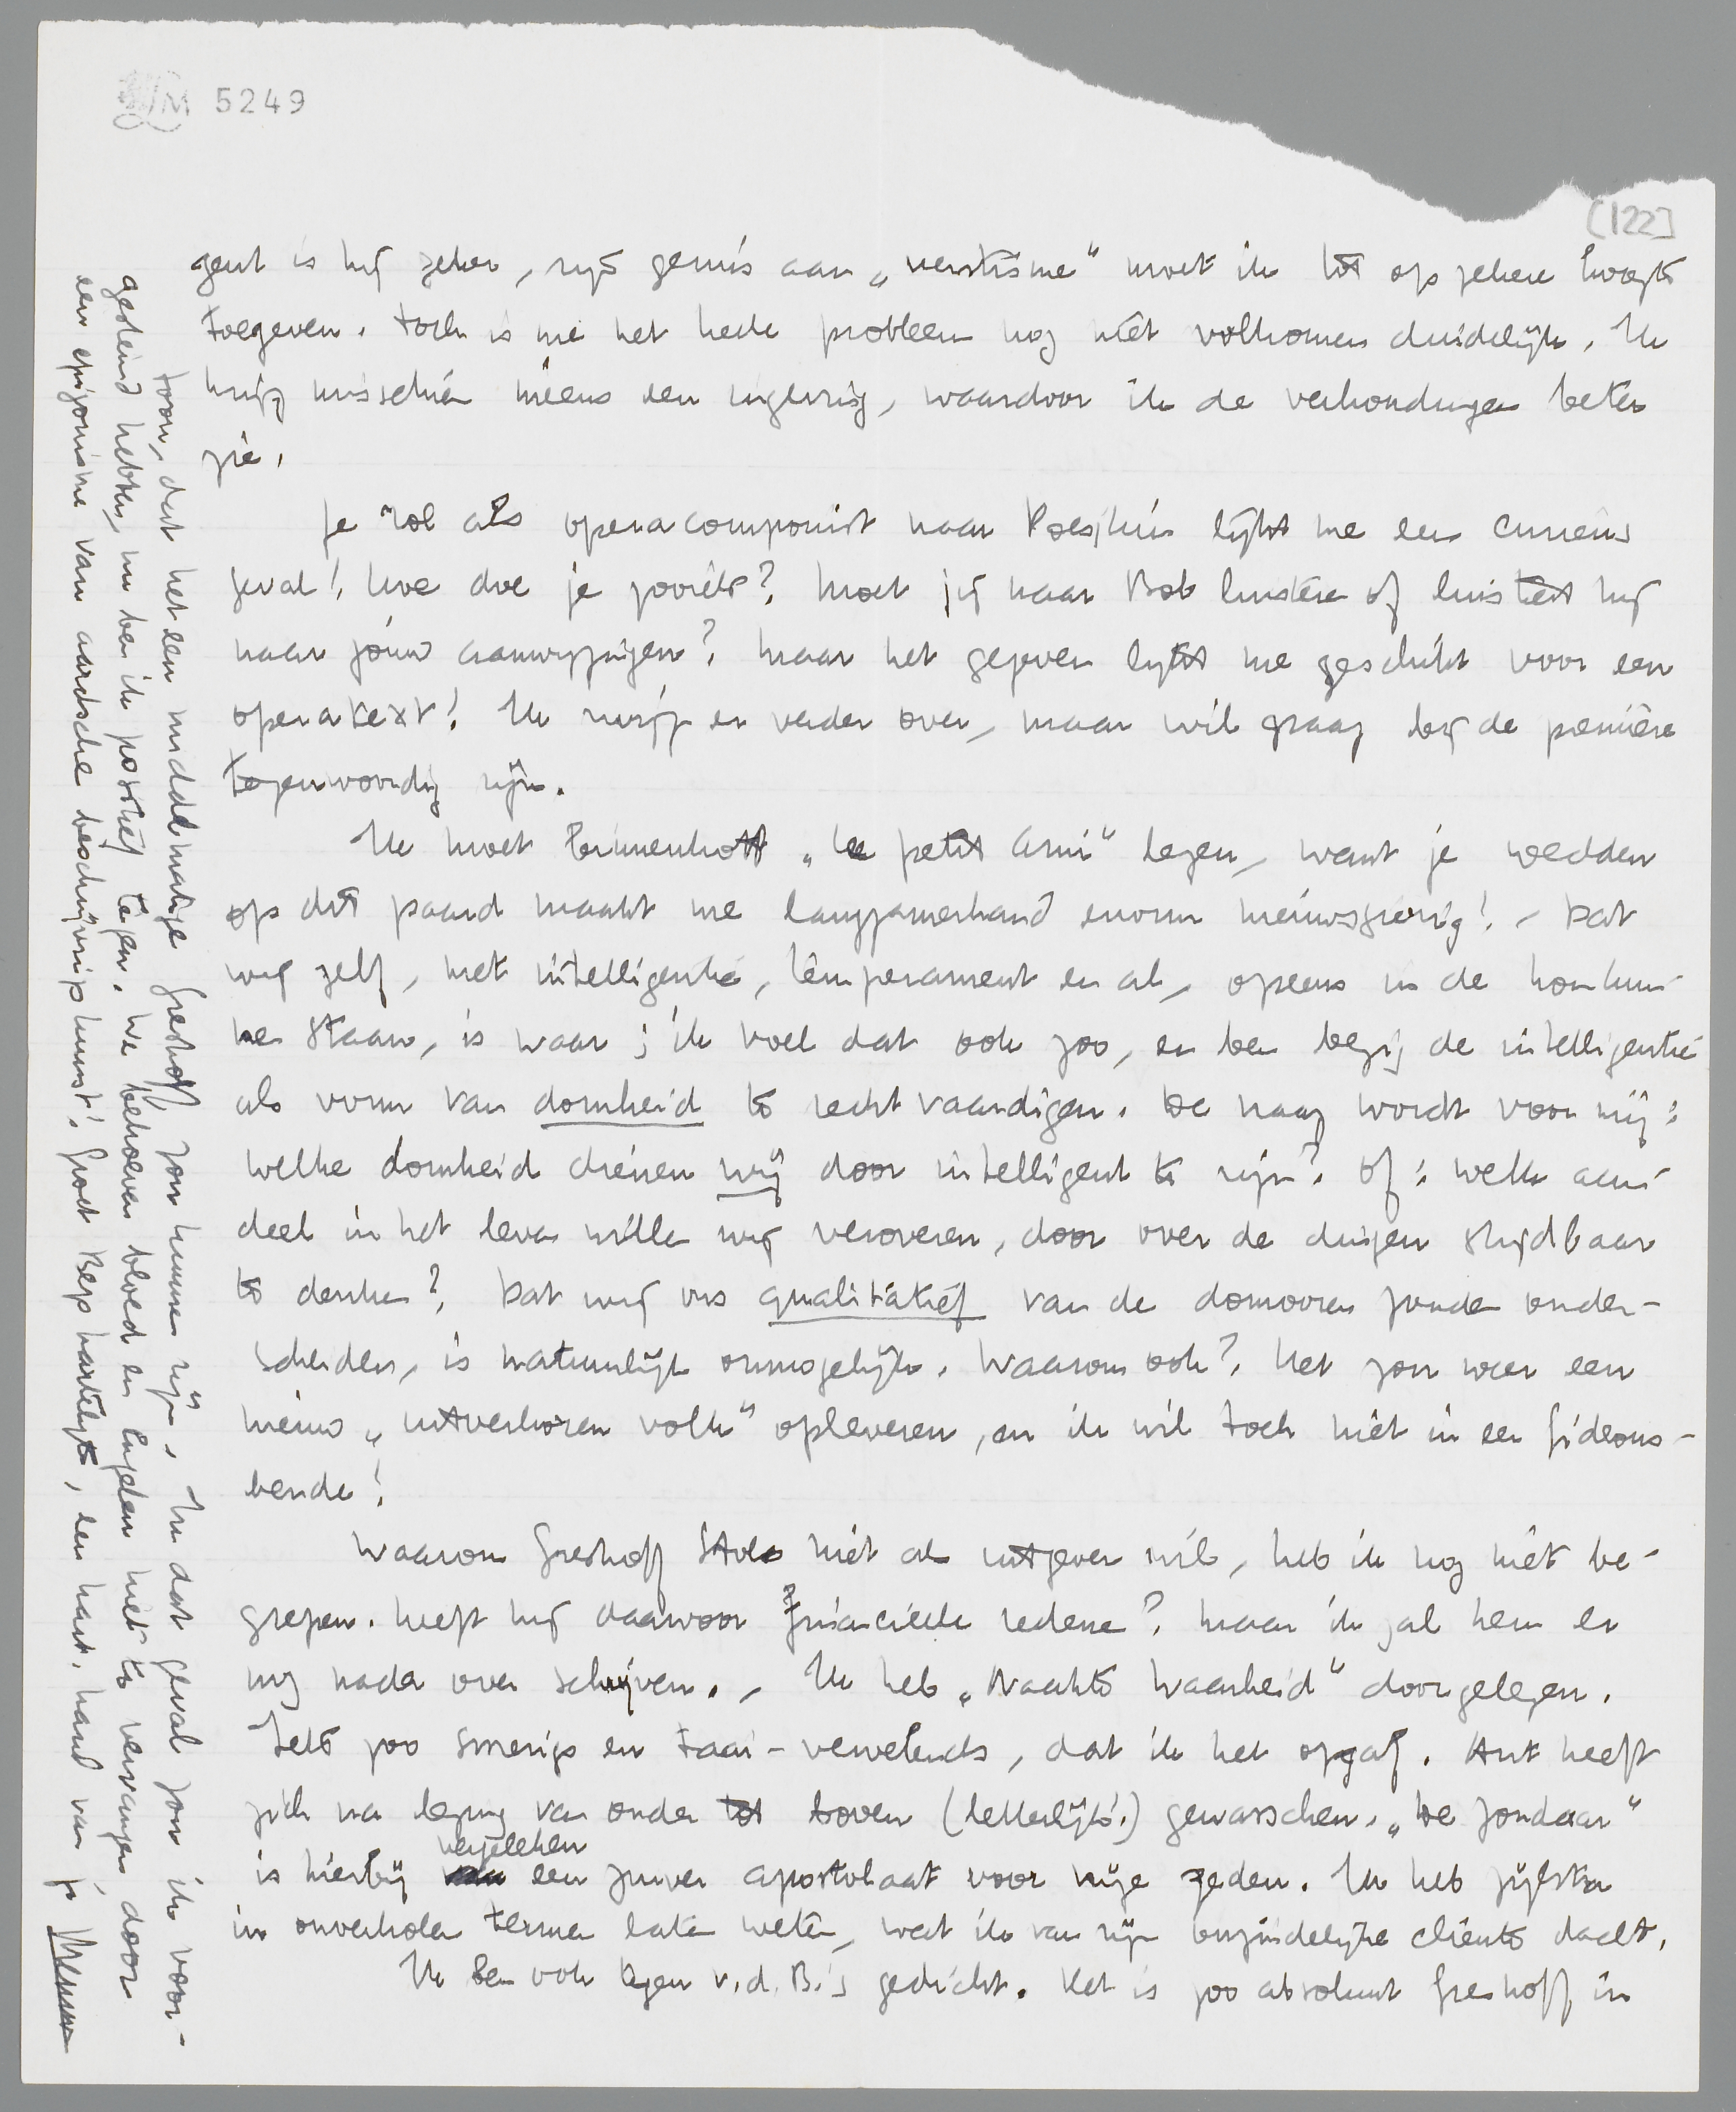 LM 5249
[122]
gent is hij zeker, zijn gemis aan „verstisme" moet ik tot op zekere hoogte
toegeven. Toch is me het heele probleem nog niet volkomen duidelijk. Ik
krijg misschien ineens een ingeving, waardoor ik de verhoudingen beter
zie.
Je rol als operacomponist naar Poesjkin lijkt me een curieus
geval! Hoe doe je zooiets? Moet jij naar Bob luisteren of luistert hij
naar jóuw aanwijzingen? Maar het gegeven lijkt me geschikt voor een
operatext! Ik zwijg er verder over, maar wil graag bij de première
tegenwoordig zijn.
Ik moet binnenkort „Le petit Ami" lezen, want je wedden
op dit paard maakt me langzamerhand enorm nieuwsgierig! – Dat
wij zelf, met intelligentie, temperament en al, opeens in de kou kun-
nen staan, is waar; ik voel dat ook zoo, en ben bezig de intelligentie
als vorm van domheid te rechtvaardigen. De vraag wordt voor mij:
welke domheid dienen wij door intelligent te zijn? Of: welk aan-
deel in het leven willen wij veroveren, door over de dingen strijdbaar
te denken? Dat wij ons qualitatief van de domooren zouden onder-
scheiden, is natuurlijk onmogelijk. Waarom ook? Het zou weer een
nieuw „uitverkoren volk" opleveren, en ik wil toch niet in een Gideons-
bende!
Waarom Greshoff Stols niet als uitgever wil, heb ik nog niet be-
grepen. Heeft hij daarvoor financieele redenen? Maar ik zal hem er
nog nader over schrijven. – Ik heb „Naakte Waarheid" doorgelezen.
Iets zoo smerigs en taai-vervelends, dat ik het opgaf. Ant heeft
zich na lezing van onder tot boven (letterlijk!) gewasschen. „De zondaar"
is hierbij vergeleken een zuiver apostolaat voor vrije zeden. Ik heb Zijlstra
in onverholen termen laten weten, wat ik van zijn onzindelijke cliënte dacht.
Ik ben ook tegen v.d. B.'s gedicht. Het is zoo absoluut Greshoff in
toon, dat het een middelmatige Greshoff zou kunnen zijn. In dat geval zou ik voor-
gestemd hebben, nu ben ik positief tegen. We behoeven bloed en engelen niet te vervangen, door
een epigonisme van aardsche beschrijvingskunst! Groet Bep hartelijk, een hart. hand van je
Menno